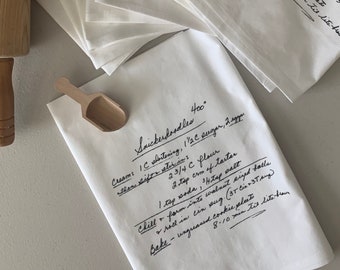 Snickerdoodles 400°
Cream: 1 C shortening, 1½ C sugar, 2 eggs
then sift & stir in:
2 3/4 C flour
2 tsp crm of tartar
1 tsp soda, ¼ tsp salt
Chill & form into walnut sized balls
& roll in cin sug (3T Cin + 3T sug)
Bake - ungreased cookie sheets
8-10 min til lite brn